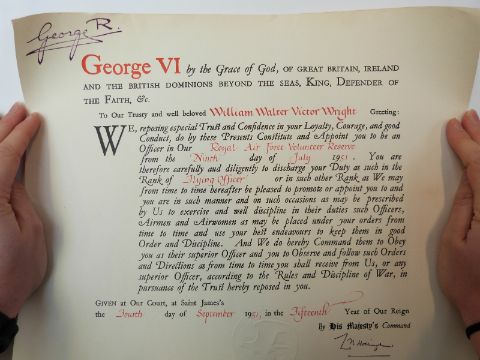 George R.
George VI by the Grace of God, OF GREAT BRITAIN, IRELAND
AND THE BRITISH DOMINIONS BEYOND THE SEAS, KING, DEFENDER OF
THE FAITH, &c.
To Our Trusty and well beloved William Walter Victor Wright Greeting:
WE, reposing especial Trust and Confidence in your Loyalty, Courage, and good
Conduct, do by these Presents Constitute and Appoint you to be an
Officer in Our Royal Air Force Volunteer Reserve
from the Ninth day of July 1951. You are
therefore carefully and diligently to discharge your Duty as such in the
Rank of Flying Officer or in such other Rank as We may
from time to time hereafter be pleased to promote or appoint you to and
you are in such manner and on such occasions as may be prescribed
by Us to exercise and well discipline in their duties such Officers,
Airmen and Airwomen as may be placed under your orders from
time to time and use your best endeavours to keep them in good
Order and Discipline. And We do hereby Command them to Obey
you as their superior Officer and you to Observe and follow such Orders
and Directions as from time to time you shall receive from Us, or any
superior Officer, according to the Rules and Discipline of War, in
pursuance of the Trust hereby reposed in you.
GIVEN at Our Court, at Saint James's
the Fourth day of September 1951, in the Fifteenth Year of Our Reign
By His Majesty's Command